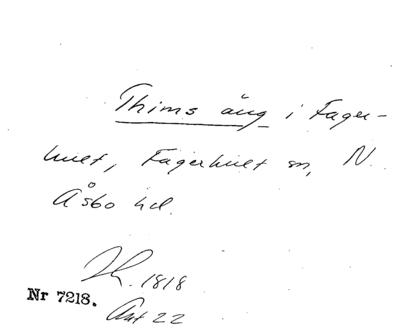 Thims äng i Fager-
hult, Fagerhult sn, N.
Åsbo hd.
Jh. 1818
Nr 7218.
Akt 22